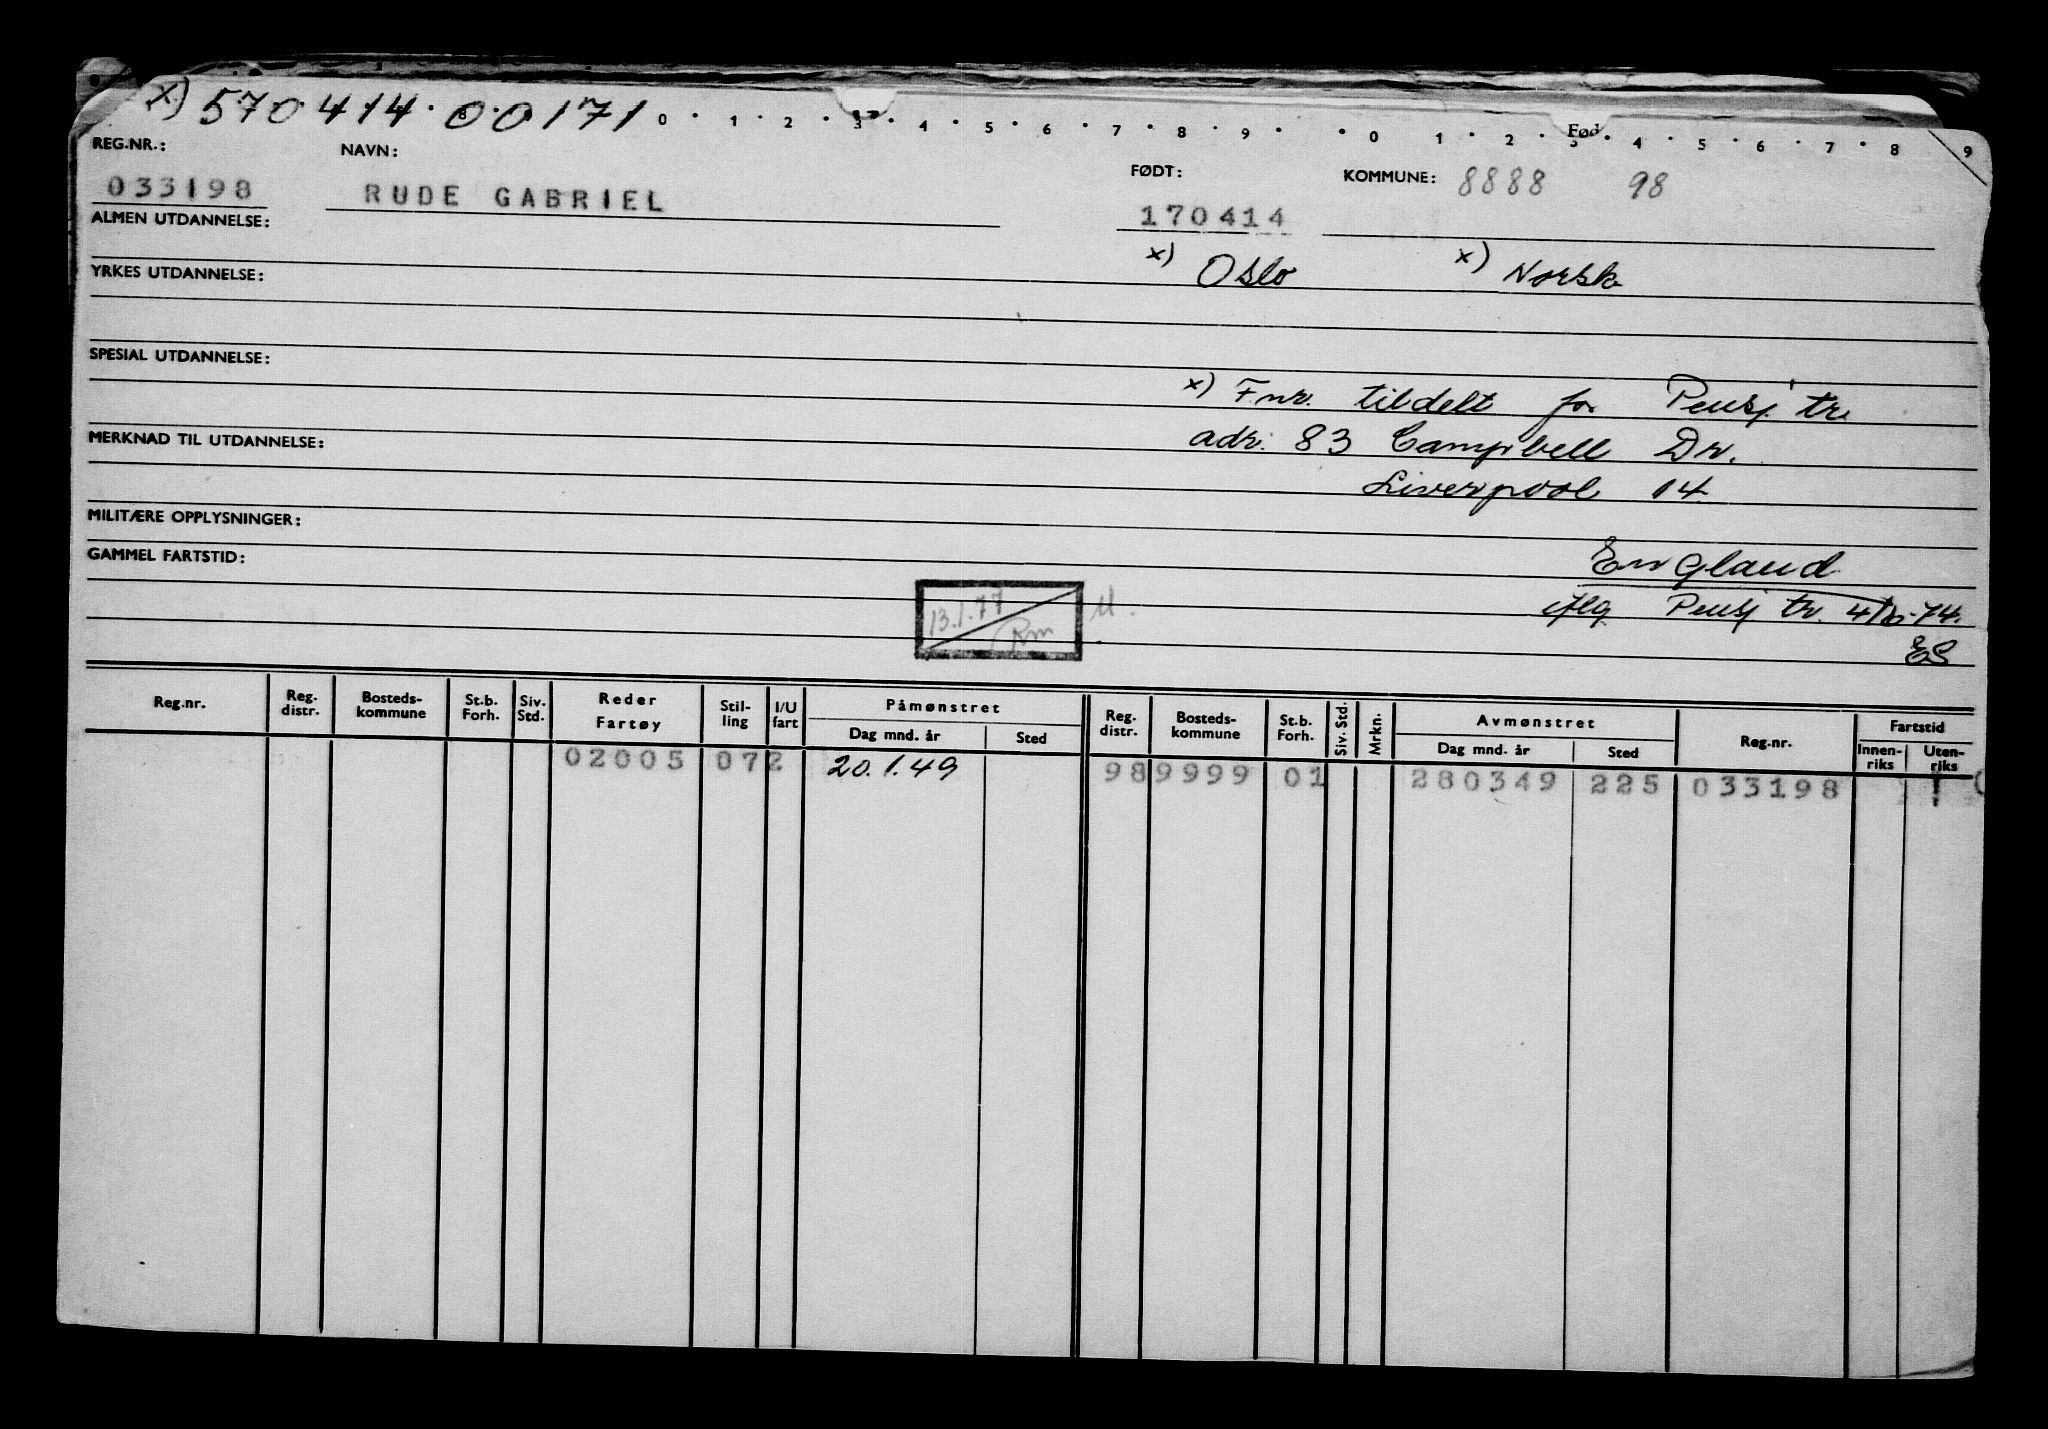 x) 570414.00171 0 · 1 · 2 · 3 · 4 · 5 · 6 · 7 · 8 · 9 · · 0 1 · 2 · 3 · 4 · 5 · 6 · 7 · 8 9
Fød
REG.NR.: NAVN: FØDT: KOMMUNE: 8888 98
033198 RUDE GABRIEL 170414
ALMEN UTDANNELSE:
x) Oslo x) Norsk
YRKES UTDANNELSE:
SPESIAL UTDANNELSE:
x) Fnr. tildelt for Pensj. tr.
MERKNAD TIL UTDANNELSE: adr. 83 Campbell Dr.
Liverpool 14
MILITÆRE OPPLYSNINGER:
GAMMEL FARTSTID: England
13.1.77 Rm Pensj tr. 74.
ES
Reg.nr. Reg. distr. Bosteds-kommune St.b. Forh. Siv. Std. Reder Fartøy Stil-ling I/U fart Påmønstret Dag mnd. år Sted Reg. distr. Bosteds-kommune St.b. Forh. Siv. Std. Mrkn. Avmønstret Dag mnd. år Sted Reg.nr. Fartstid Innen-riks Uten-riks
02005 072 20.1.49 98 9999 01 280349 225 033198